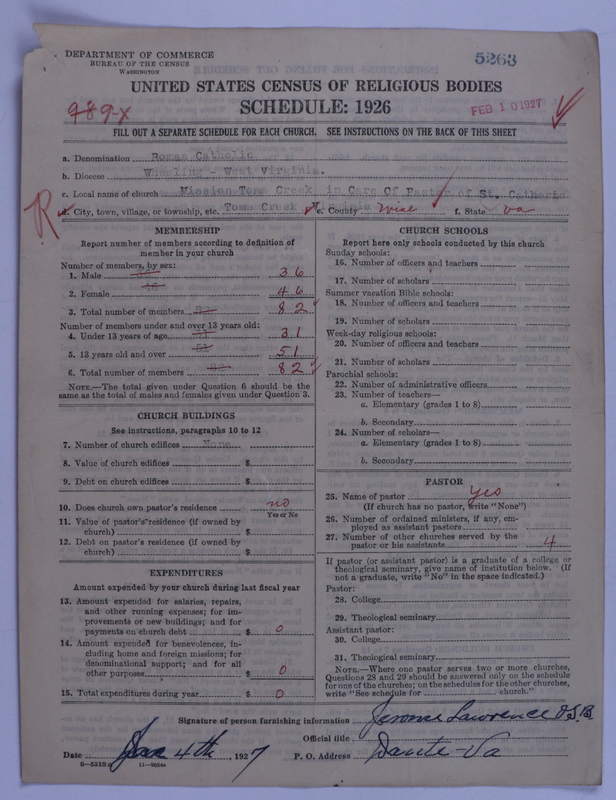 DEPARTMENT OF COMMERCE
BUREAU OF THE CENSUS
WASHINGTON
5263
UNITED STATES CENSUS OF RELIGIOUS BODIES
SCHEDULE: 1926
989-X
FEB 10 1927
FILL OUT A SEPARATE SCHEDULE FOR EACH CHURCH. SEE INSTRUCTIONS ON THE BACK OF THIS SHEET
a. Denomination Roman Catholic
b. Diocese Wheeling - West Virginia.
c. Local name of church Mission Toms Creek in Care Of Pastor of St. Catherin
R
d. City, town, village, or township, etc. Toms Creek Virginia e. County Wise f. State Va
MEMBERSHIP
Report number of members according to definition of member in your church
Number of members, by sex:
1. Male 36
2. Female 46
3. Total number of members 82
Number of members under and over 13 years old:
4. Under 13 years of age 31
5. 13 years old and over 51
6. Total number of members 82
NOTE.—The total given under Question 6 should be the same as the total of males and females given under Question 3.
CHURCH BUILDINGS
See instructions, paragraphs 10 to 12
7. Number of church edifices None
8. Value of church edifices $
9. Debt on church edifices $
10. Does church own pastor's residence no
Yes or No
11. Value of pastor's residence (if owned by church) $
12. Debt on pastor's residence (if owned by church) $
EXPENDITURES
Amount expended by your church during last fiscal year
13. Amount expended for salaries, repairs, and other running expenses; for improvements or new buildings; and for payments on church debt $ 0
14. Amount expended for benevolences, including home and foreign missions; for denominational support; and for all other purposes $ 0
15. Total expenditures during year $ 0
CHURCH SCHOOLS
Report here only schools conducted by this church
Sunday schools:
16. Number of officers and teachers
17. Number of scholars
Summer vacation Bible schools:
18. Number of officers and teachers
19. Number of scholars
Week-day religious schools:
20. Number of officers and teachers
21. Number of scholars
Parochial schools:
22. Number of administrative officers
23. Number of teachers—
a. Elementary (grades 1 to 8)
b. Secondary
24. Number of scholars—
a. Elementary (grades 1 to 8)
b. Secondary
PASTOR
25. Name of pastor yes
(If church has no pastor, write "None")
26. Number of ordained ministers, if any, employed as assistant pastors
27. Number of other churches served by the pastor or his assistants 4
If pastor (or assistant pastor) is a graduate of a college or theological seminary, give name of institution below. (If not a graduate, write "No" in the space indicated.)
Pastor:
28. College
29. Theological seminary
Assistant pastor:
30. College
31. Theological seminary
NOTE.—Where one pastor serves two or more churches, Questions 28 and 29 should be answered only on the schedule for one of the churches; on the schedules for the other churches, write "See schedule for church."
Signature of person furnishing information Jerome Lawrence O.S.B.
Official title
Date Jan 4th, 1927 P. O. Address Dante-Va
8-5318a 11-9054a